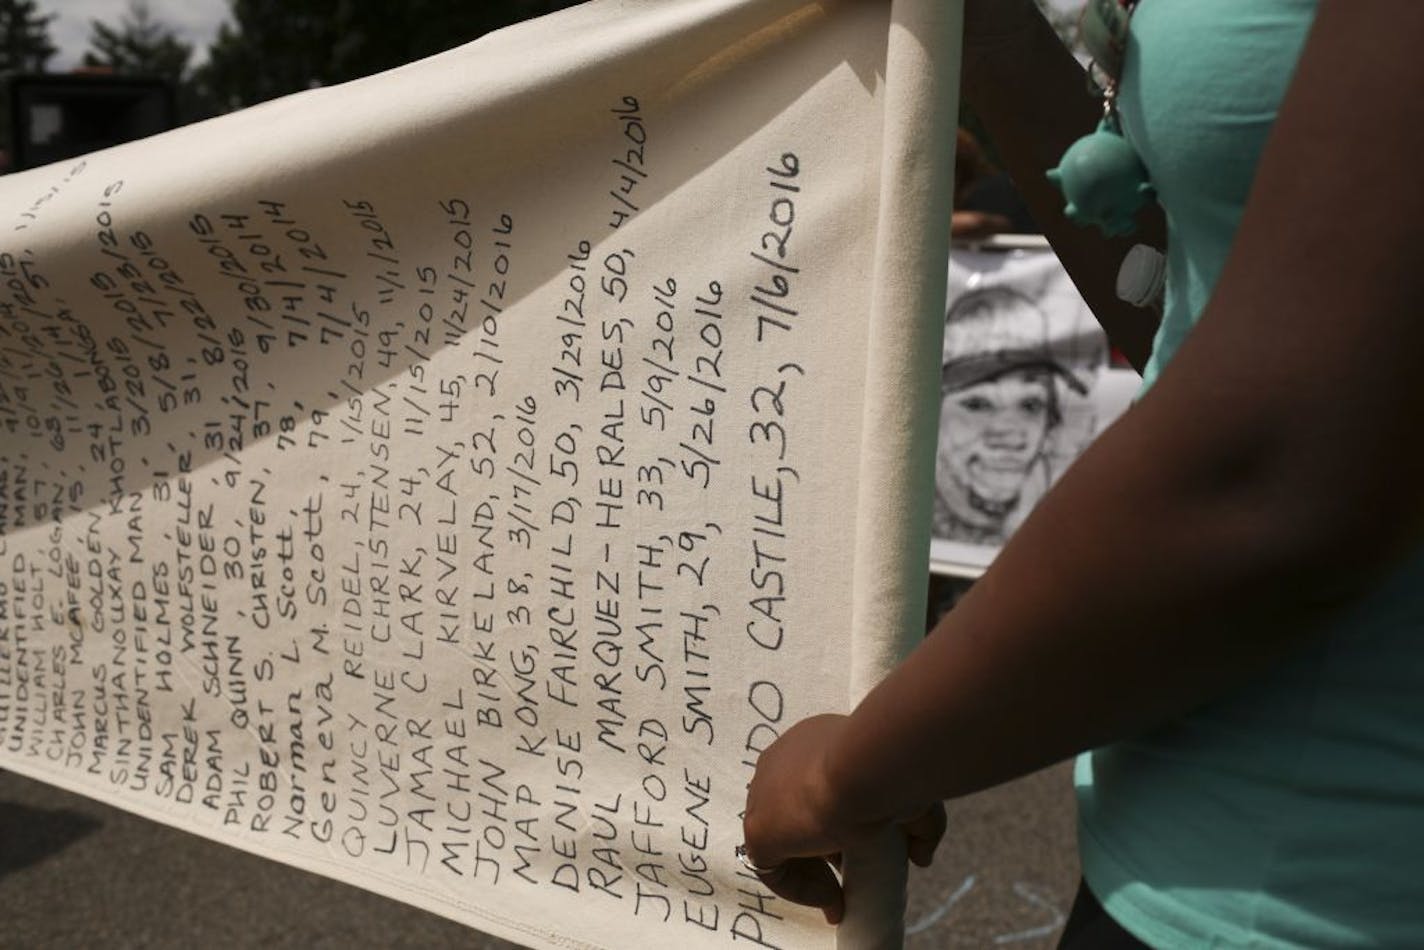 UNIDENTIFIED MAN, 10/9
WILLIAM HOLT, 57, 11/20/2015
CHARLES E. LOGAN, 68,
JOHN MCAFEE,
MARCUS GOLDEN, 24,
SINTHANOUXAY KHOTLABONGSA,
UNIDENTIFIED MAN, 3/2015
SAM HOLMES, 31, 5/8/2015
DEREK WOLFSTELLER, 31,
ADAM SCHNEIDER, 31 8/22/2015
PHIL QUINN, 30, 9/24/2015
ROBERT S. CHRISTEN, 37, 9/30/2014
Norman L. Scott, 78, 7/4/2014
Geneva M. Scott, 79, 7/4/2014
QUINCY REIDEL, 24, 1/15/2015
LUVERNE CHRISTENSEN, 49, 11/1/2015
JAMAR CLARK, 24, 11/15/2015
MICHAEL KIRVELAY, 45, 11/24/2015
JOHN BIRKELAND, 52, 2/10/2016
MAP KONG, 38, 3/17/2016
DENISE FAIRCHILD, 50, 3/29/2016
RAUL MARQUEZ-HERALDES, 50, 4/4/2016
JAFFORD SMITH, 33, 5/9/2016
EUGENE SMITH, 29, 5/26/2016
CASTILE, 32, 7/6/2016